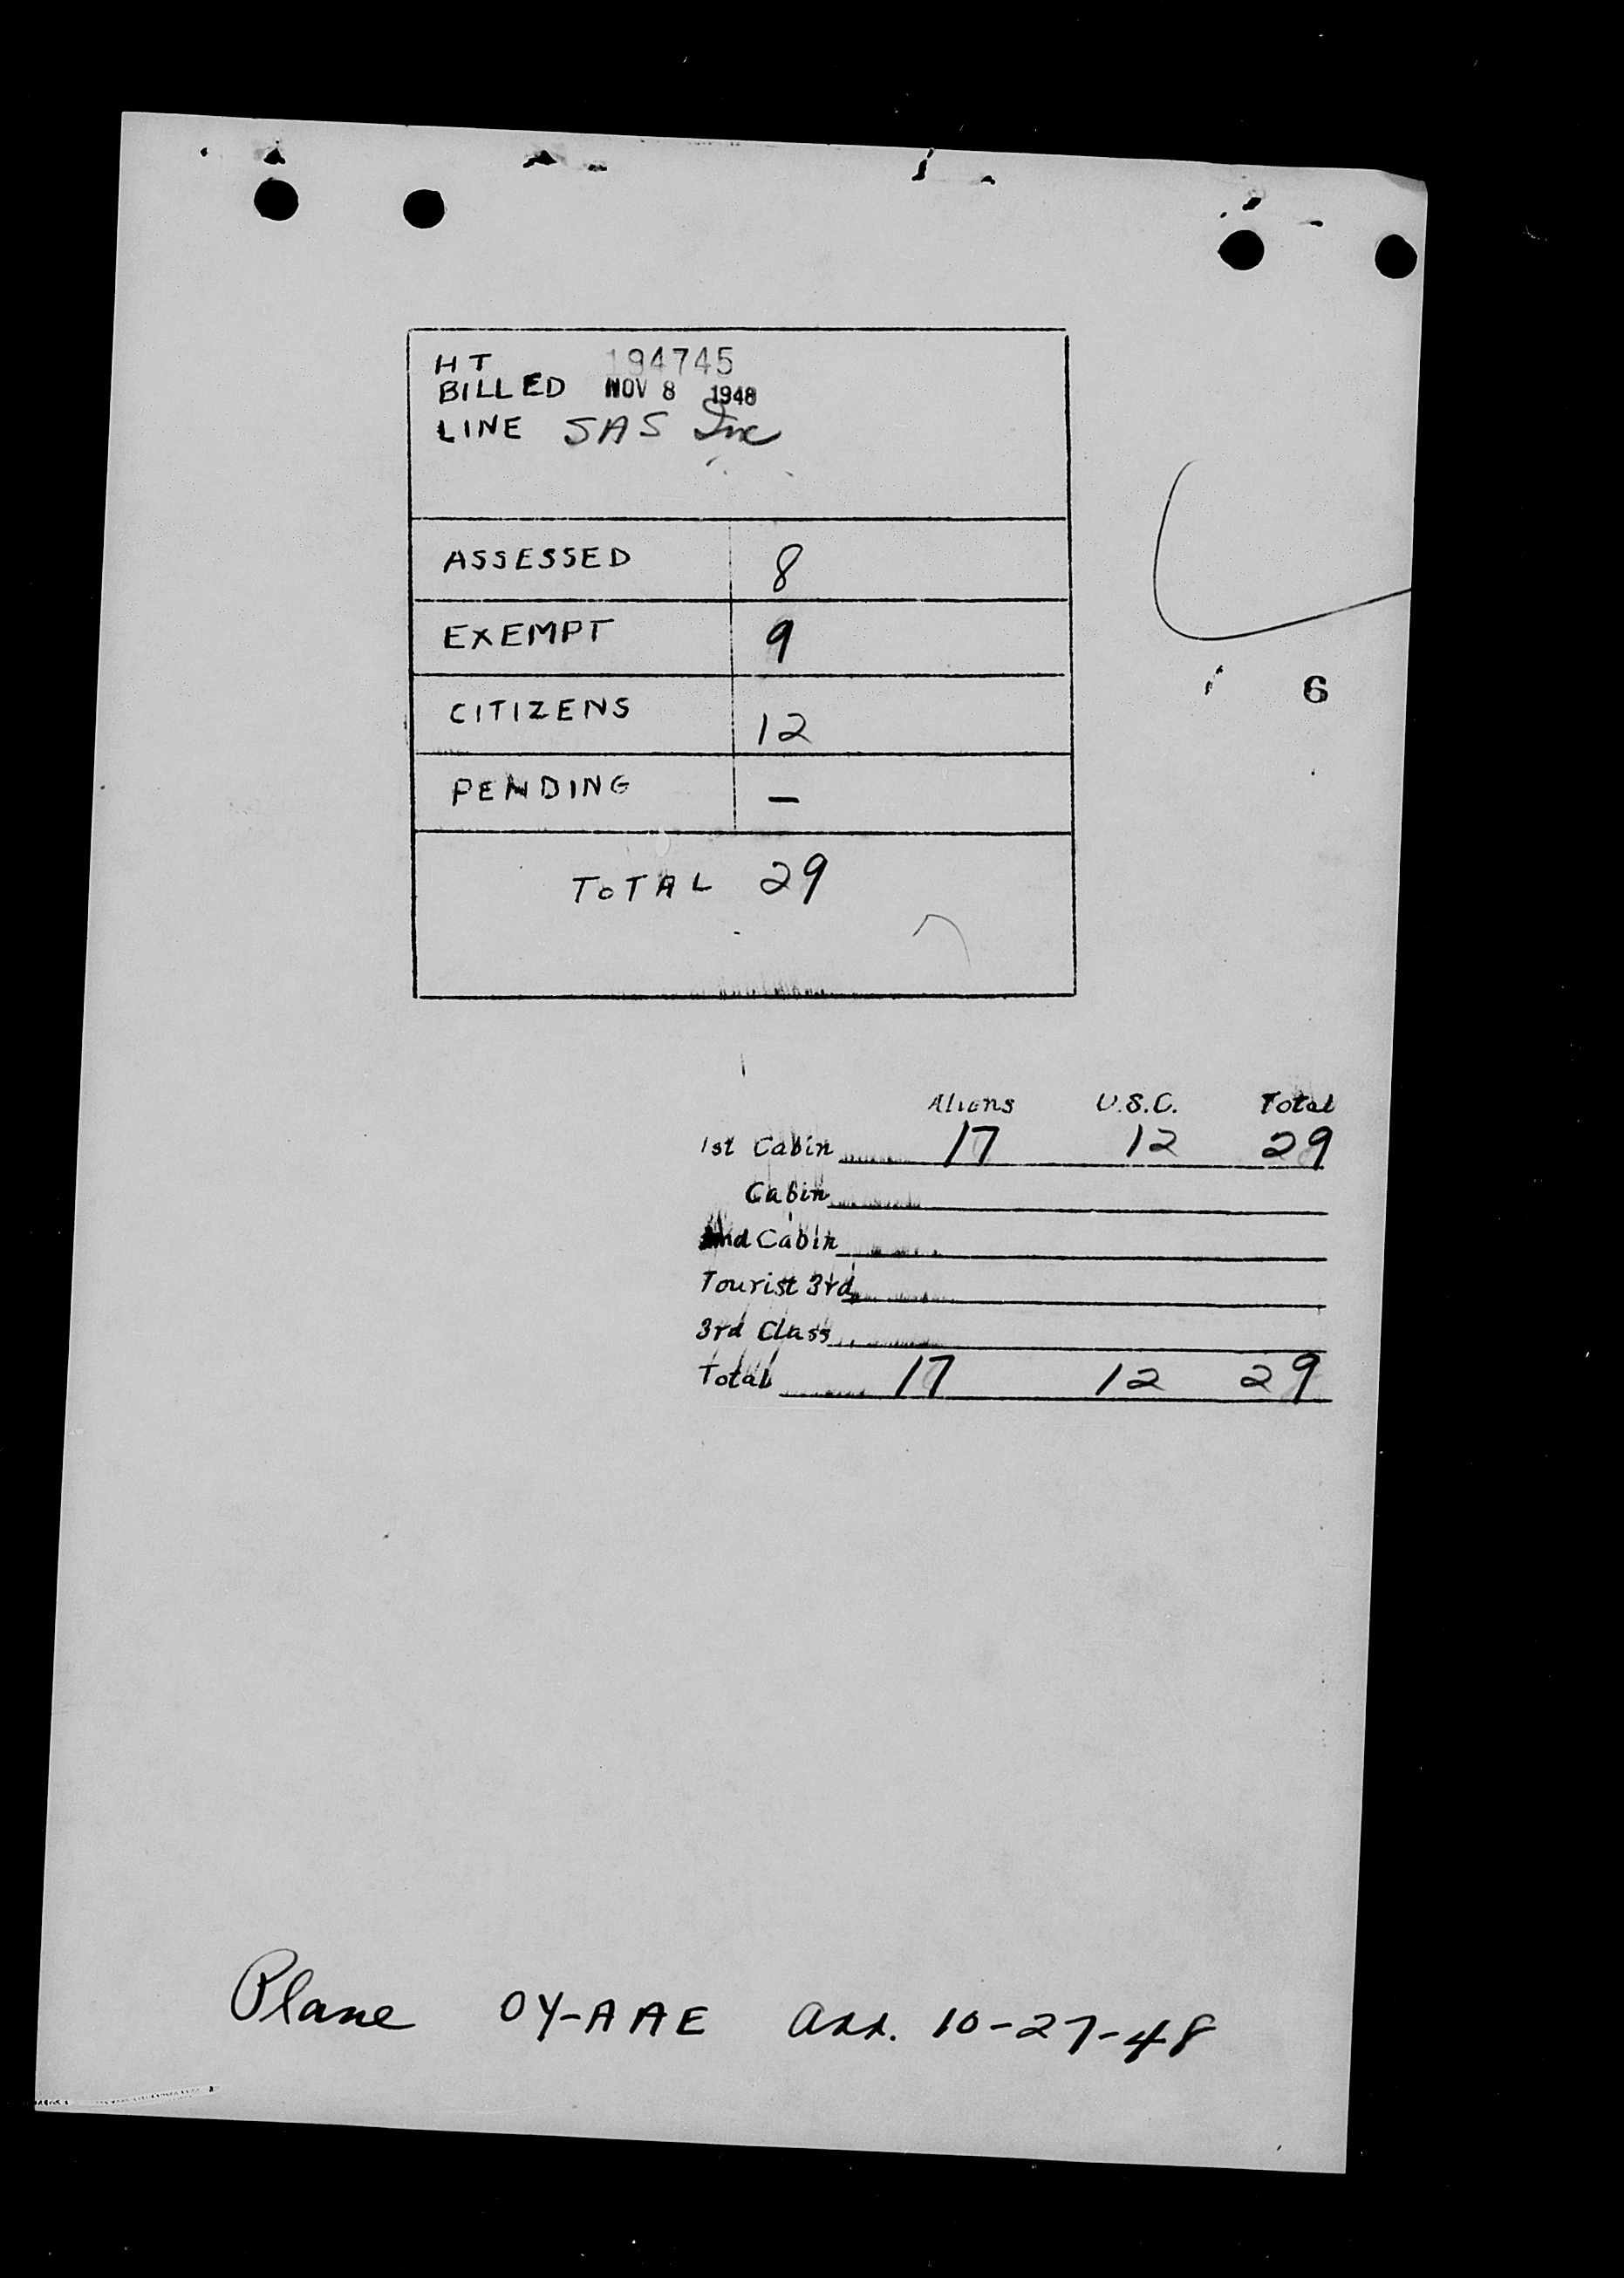 HT 194745
BILLED NOV 8 1948
LINE SAS Inc
ASSESSED 8
EXEMPT 9
CITIZENS 12
PENDING —
TOTAL 29
6
Aliens U.S.C. Total
1st Cabin 17 12 29
Cabin
2nd Cabin
Tourist 3rd
3rd Class
Total 17 12 29
Plane OY-AAE arr. 10-27-48